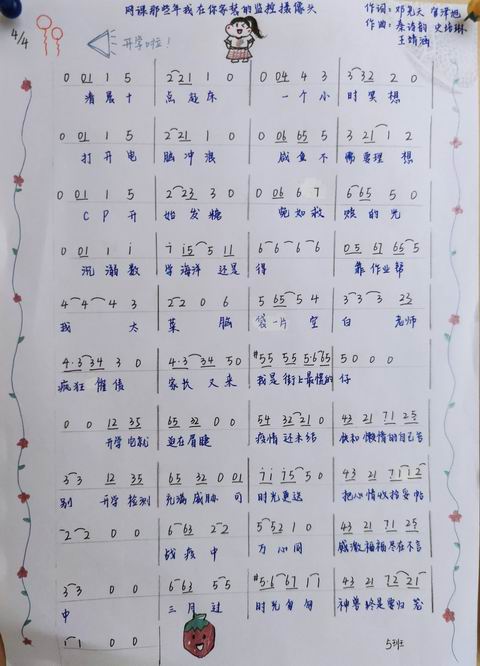 网课那些年我在你家装的监控摄像头
作词：邓
作曲：
4/4
开学啦！
0 01 1 5 2 21 1 0 0 04 4 3 3 32 2 0
清晨十 点起床 一个小 时冥想
0 01 1 5 2 21 1 0 0 06 65 5 3 21 1 2
打开电 脑冲浪 咸鱼不 需要理想
0 01 1 5 2 23 3 0 0 06 6 7 6 65 5 0
CP开 始发糖 宛如救 赎的光
0 01 1 i 7 i5 5 11 6 6 6 6 05 67 65 5
沉溺数 学海洋 还是 得 靠作业帮
4 4 4 3 2 2 0 6 5 65 5 4 3 3 3 23
我 太 菜 脑 袋一片 空 白 老师
4·3 34 3 0 4·3 34 50 #55 55 5·6 65 5 0 0 0
疯狂催债 家长又来 我是街上最慢的 仔
0 0 12 35 65 32 0 0 54 32 21 0 43 21 71 25
开学 迫在眉睫 疫情还未结 快和懒惰的自己告
3 3 12 35 65 32 0 01 43 21 71 12
别 开学检测 充满威胁 时光 把心情收拾妥帖
2 2 0 0 6 63 2 2 5 52 1 0 43 21 71 25
战疫中 万心同 感激福祸尽在不言
3 3 0 0 6 63 5 5 43 21 72 21
中 三月过 时光匆匆 神兽终是要归笼
1 1 0 0
5班